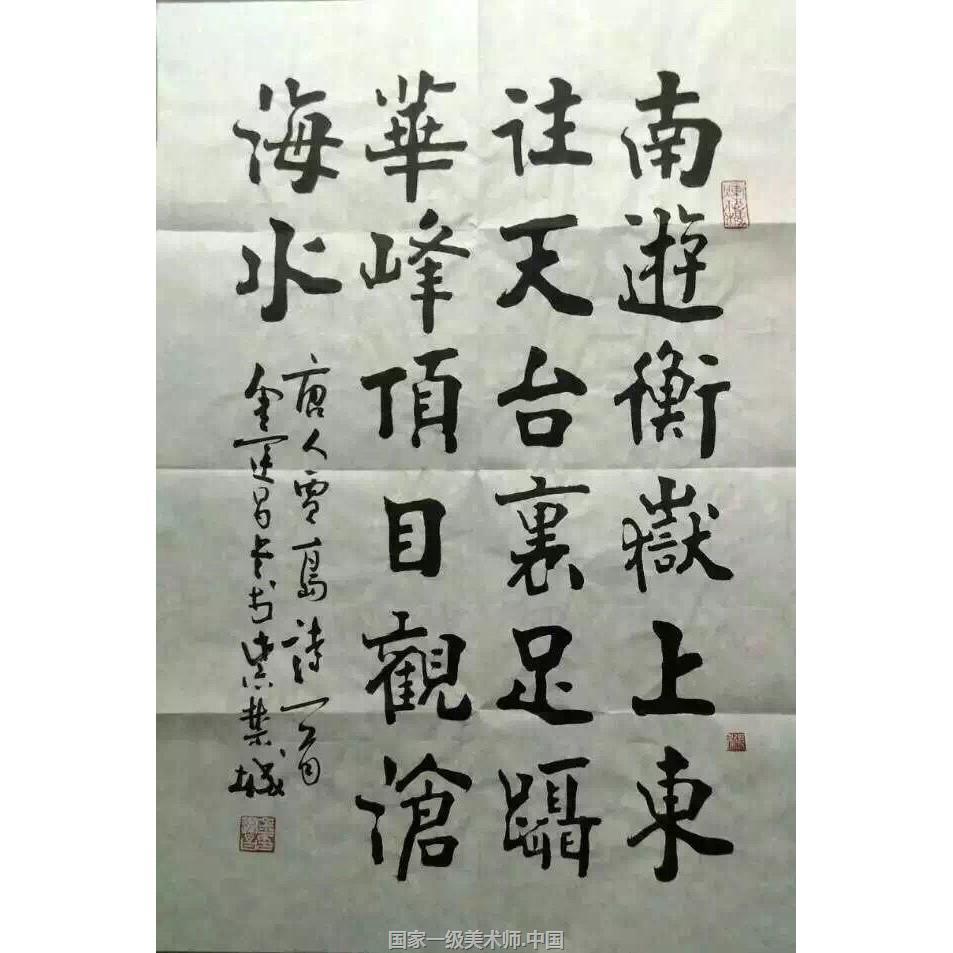 南遊衡嶽上東
往天台裏足躡
華峰頂目觀滄
海水
唐人賈島詩一首
金運昌書於紫禁城
国家一级美术师.中国